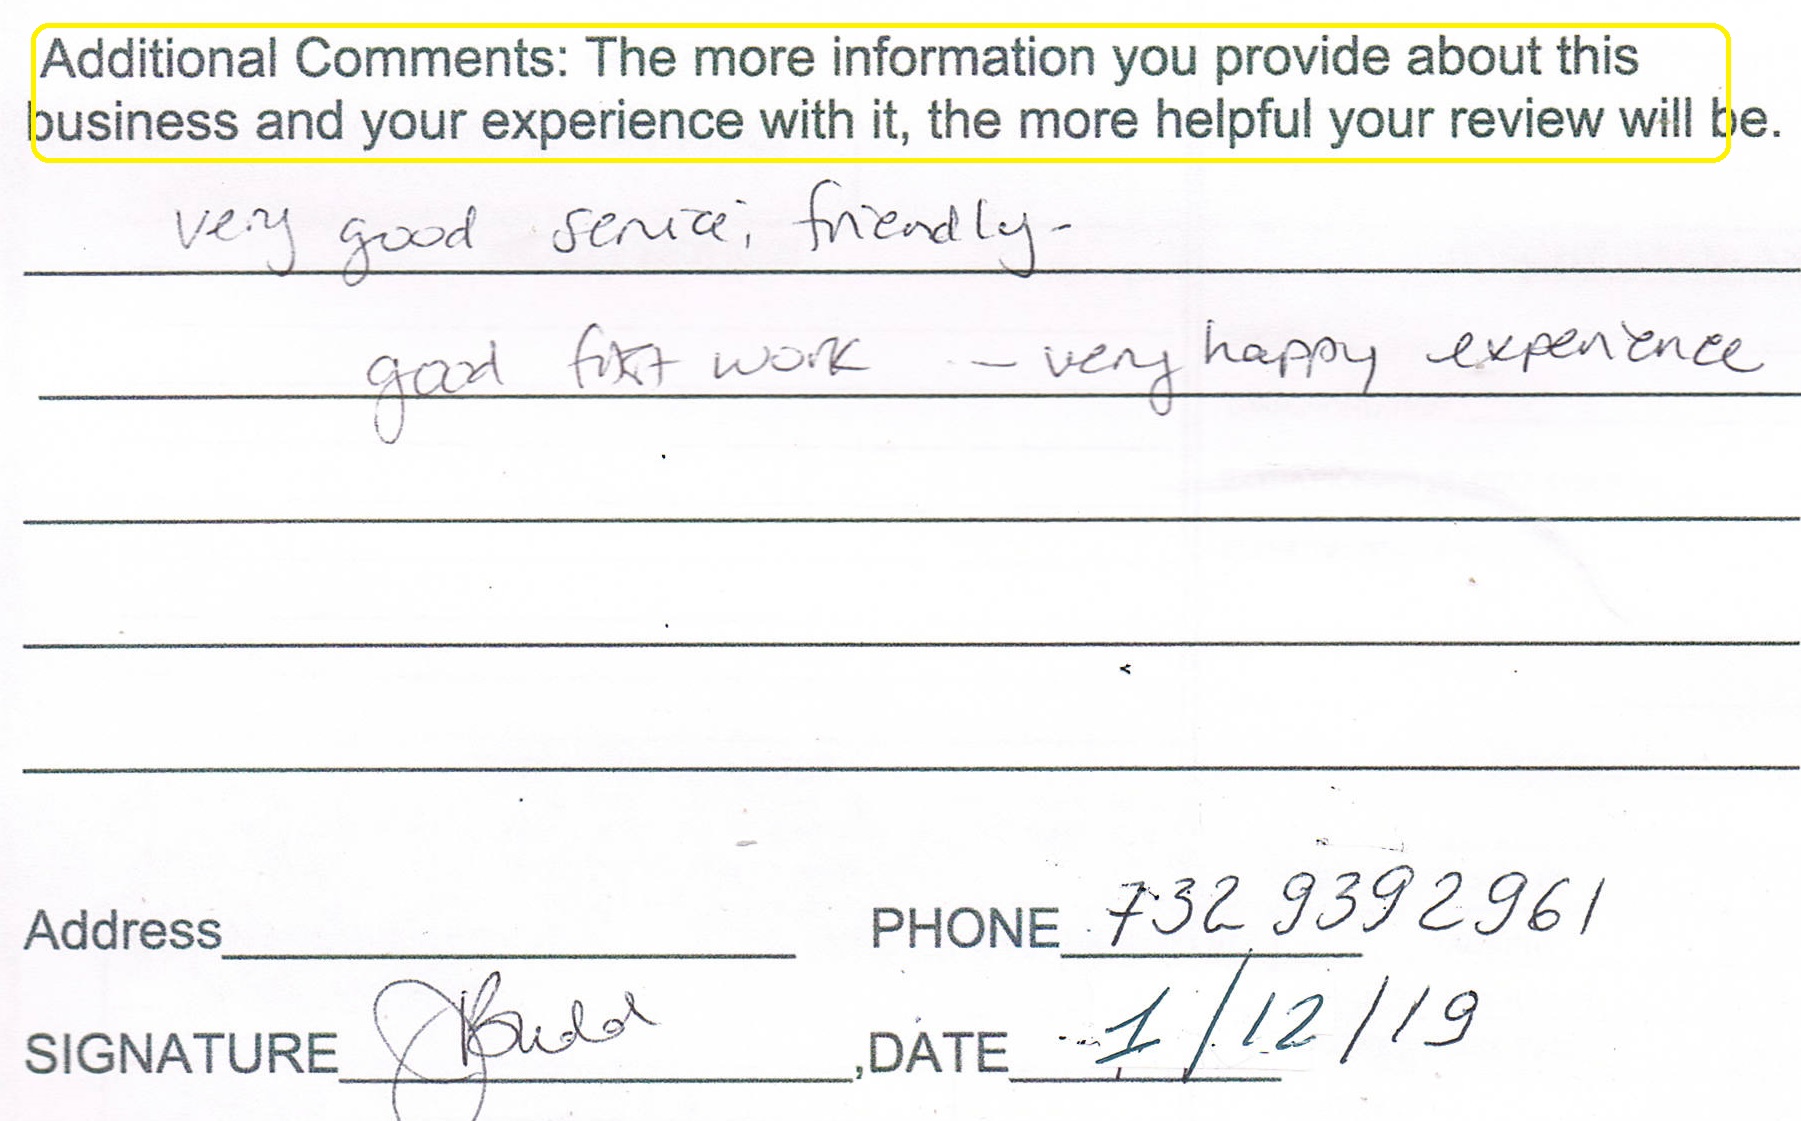 Additional Comments: The more information you provide about this
business and your experience with it, the more helpful your review will be.
very good service, friendly-
good work - very happy experience
Address PHONE 732 9392961
SIGNATURE ,DATE 1/12/19